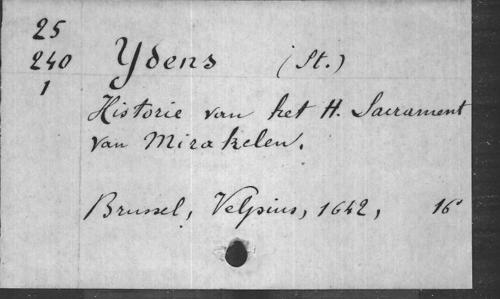 25
240 Ydens (St.)
1
Historie van het H. Sacrament
van Mirakelen.
Brussel, Velpius, 1642, 16°